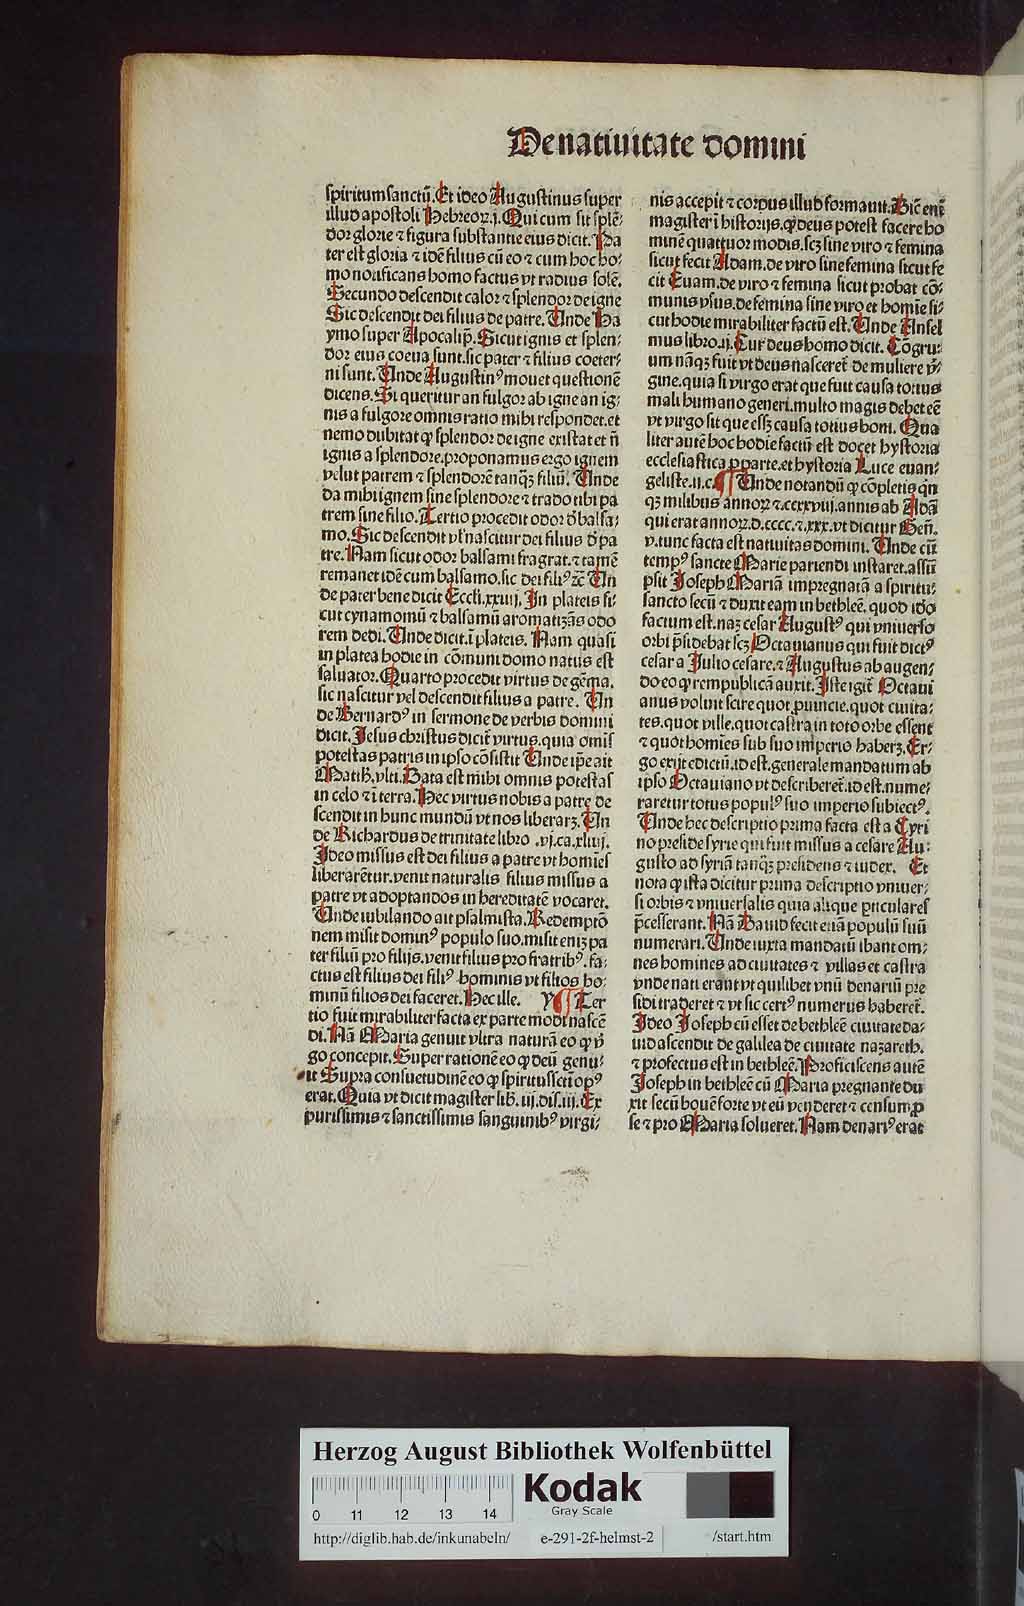 De natiuitate domini
spiritum sanctū. Et ideo Augustinus super
illud apostoli Hebreoꝝ.i. Qui cum sit splē
dor glorie ⁊ figura substantie eius dicit. Pa
ter est gloria ⁊ idē filius cū eo ⁊ cum hoc ho⸗
mo notificans homo factus vt radius solē.
Secundo descendit calor ⁊ splendor de igne
Sic descendit dei filius de patre. Unde Ha
ymo super Apocalip̄. Sicut ignis et splen⸗
dor eius coeua sunt. sic pater ⁊ filius coeter⸗
ni sunt. Unde Augustinꝰ mouet questionē
dicens. Si queritur an fulgor ab igne an ig⸗
nis a fulgore omnis ratio mihi respondet. et
nemo dubitat ꝙ splendor de igne existat et n̄
ignis a splendore. proponamus ergo ignem
velut patrem ⁊ splendorē tanqꝫ filiū. Unde
da mihi ignem sine splendore ⁊ trado tibi pa
trem sine filio. Tertio procedit odor d̓ balsa⸗
mo. Sic descendit vl̓ nascitur dei filius d̓ pa
tre. Nam sicut odor balsami fragrat. ⁊ tamē
remanet idē cum balsamo. sic dei filiꝰ ⁊c̄ Un
de pater bene dicit Eccli.xxiiij. In plateis si⸗
cut cynamomū ⁊ balsamū aromatizās odo
rem dedi. Unde dicit. ī plateis. Nam quasi
in platea hodie in cōmuni domo natus est
saluator. Quarto procedit virtus de gēma.
sic nascitur vel descendit filius a patre. Un
de Bernardꝰ in sermone de verbis domini
dicit. Jesus christus dicit̄ virtus. quia omīs
potestas patris in ipso cōsistit Unde ip̄e ait
Matth. vlti. Data est mihi omnis potestas
in celo ⁊ ī terra. Hec virtus nobis a patre de
scendit in hunc mundū vt nos liberarꝫ. Un
de Richardus de trinitate libro .vj.ca.xliiij.
Ideo missus est dei filius a patre vt homīes
liberarētur. venit naturalis filius missus a
patre vt adoptandos in hereditatē vocaret.
Unde iubilando ait psalmista. Redemptō
nem misit dominꝰ populo suo. misit enīꝫ pa
ter filiū pro filijs. venit filius pro fratribꝰ. fa⸗
ctus est filius dei filiꝰ hominis vt filios ho⸗
minū filios dei faceret. Hec ille. Y ¶ Ter
tio fuit mirabiliter facta ex parte modi nascē
di. Nā Maria genuit vltra naturā eo ꝙ v̓
go concepit. Super rationē eo ꝙ deū genu⸗
it Supra consuetudinē eo ꝙ spiritussctī opꝰ
erat. Quia vt dicit magister lib. iij. dis. iij. Ex
purissimis ⁊ sanctissimis sanguinibꝰ virgi⸗
nis accepit ⁊ corpus illud formauit. Dic̄ enī
magister ī historijs. ꝙ deus potest facere ho
minē quattuor modis. scꝫ sine viro ⁊ femina
sicut fecit Adam. de viro sine femina sicut fe
cit Euam. de viro ⁊ femina sicut probat cō⸗
munis vsus. de femina sine viro et homīe si⸗
cut hodie mirabiliter factū est. Unde Ansel
mus libro.ij. Cur deus homo dicit. Cōgru⸗
um nāqꝫ fuit vt deus nasceret̄ de muliere v̓⸗
gine. quia si virgo erat que fuit causa totius
mali humano generi. multo magis debet eē
vt virgo sit que essꝫ causa totius boni. Qua
liter autē hoc hodie factū est docet hystoria
ecclesiastica p parte. et hystoria Luce euan⸗
geliste.ii.c. ¶ Unde notandū ꝙ cōpletis qn̄
qꝫ milibus annoꝝ ⁊ ccxxviij. annis ab Adā
qui erat annoꝝ.d.cccc.⁊.xxx. vt dicitur Gen̄.
v. tunc facta est natiuitas domini. Unde cū
tempꝰ sancte Marie pariendi instaret. assū
psit Joseph Mariā impregnatā a spiritu⸗
sancto secū ⁊ duxit eam in bethleē. quod idō
factum est. naꝫ cesar Augustꝰ qui vniuerso
orbi p̄sidebat scꝫ Octauianus qui fuit dictꝰ
cesar a Julio cesare. ⁊ Augustus ab augen⸗
do eo ꝙ rempublicā auxit. Iste igit̄ Octaui
anus voluit scire quot prouincie. quot ciuita⸗
tes. quot ville. quot castra in toto orbe essent
⁊ quot homīes sub suo imperio haberꝫ. Er⸗
go exijt edictū. id est. generale mandatum ab
ipso Octauiano vt describeret̄. id est. nume⸗
raretur totus populꝰ suo imperio subiectꝰ.
Unde hec descriptio prima facta est a Cyri
no preside syrie qui fuit missus a cesare Au⸗
gusto ad syriā tanqꝫ presidens ⁊ iudex. Et
nota ꝙ ista dicitur prima descriptio vniuer⸗
si orbis ⁊ vniuersalis quia alique particulares
p̄cesserant. Nā Dauid fecit etiā populū suū
numerari. Unde iuxta mandatū ibant om⸗
nes homines ad ciuitates ⁊ villas et castra
vnde nati erant vt quilibet vnū denariū pre
sidi traderet ⁊ vt sic certꝰ numerus haberet̄.
Ideo Joseph cū esset de bethleē ciuitate da⸗
uid ascendit de galilea de ciuitate nazareth.
⁊ profectus est in bethleē. Proficiscens autē
Joseph in bethleē cū Maria pregnante du
xit secū bouē forte vt eū venderet ⁊ censum ꝓ
se ⁊ pro Maria solueret. Nam denariꝰ erat
Herzog August Bibliothek Wolfenbüttel
Kodak
Gray Scale
0 11 12 13 14
http://diglib.hab.de/inkunabeln/ e-291-2f-helmst-2 /start.htm